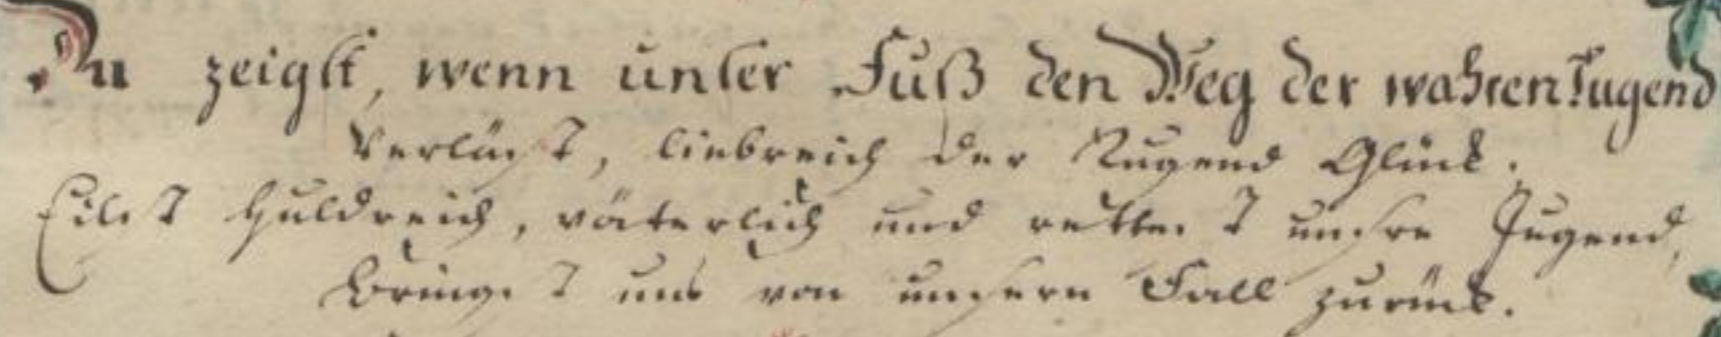 Du zeigst, wenn unser Fuß den Weg der wahren Tugend
Verläßt, liebreich der Tugend Glück.
Eilest huldreich, väterlich und rettest unsre Jugend,
Bringest uns von unsern Fall zurück.